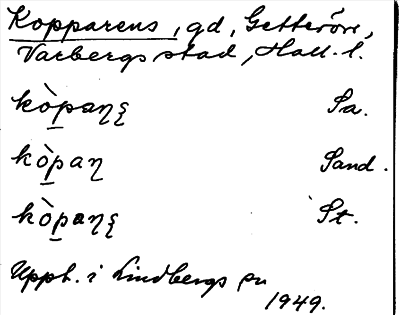 Kopparens, gd, Getterön,
Varbergs stad, Hall. l.
kò̱paŋꞩ Sa.
kò̱paŋ Sand.
kò̱paŋꞩ St.
Uppt. i Lindbergs sn
1949.